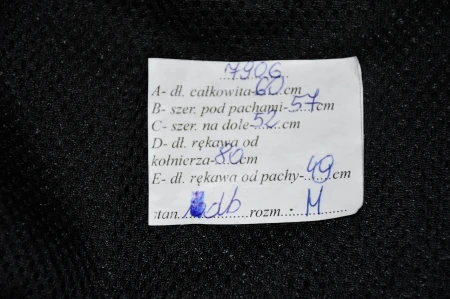 7906
A- dł. całkowita-60cm
B- szer. pod pachami-57cm
C- szer. na dole-52cm
D- dł. rękawa od
kołnierza-80cm
E- dł. rękawa od pachy-49cm
stan db rozm.-M